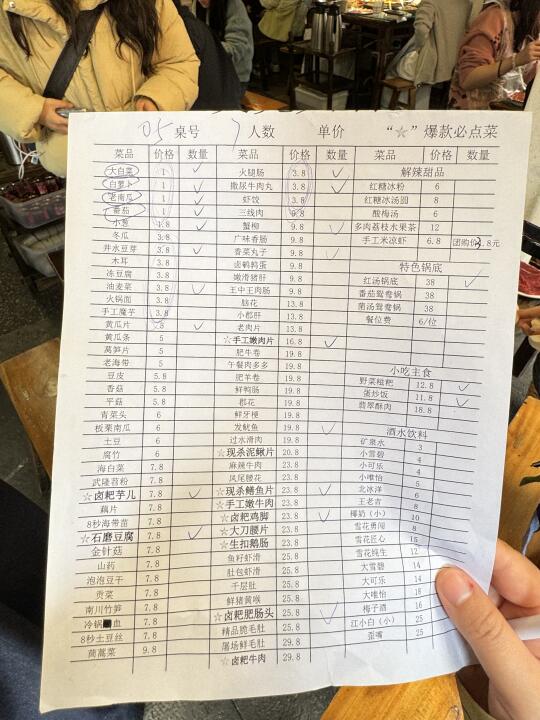 05 桌号 7 人数 单价 “☆”爆款必点菜
菜品 价格 数量 菜品 价格 数量 菜品 价格 数量
大白菜 1 ✓ 火腿肠 3.8 ✓ 解辣甜品
白萝卜 1 ✓ 撒尿牛肉丸 3.8 ✓ 红糖冰粉 6
老南瓜 1 ✓ 虾饺 3.8 红糖汤圆 8
番茄 1 ✓ 三线肉 酸梅汤 6
小葱 1.8 ✓ 蟹柳 9.8 ✓ 多肉荔枝水果茶 12
冬瓜 3.8 广味香肠 9.8 手工米凉虾 6.8 团购价3.8元
井水豆芽 3.8 ✓ 香菜丸子 9.8 ✓
木耳 3.8 卤鹌鹑蛋 9.8 特色锅底
冻豆腐 3.8 嫩滑猪肝 9.8 红汤锅底 38 ✓
油麦菜 3.8 ✓ 王中王肉肠 9.8 番茄鸳鸯锅 38
火锅面 3.8 脑花 13.8 菌汤鸳鸯锅 38
手工魔芋 3.8 小郡肝 13.8 餐位费 6/位
黄瓜片 ✓ 老肉片 13.8
黄瓜条 5 ☆手工嫩肉片 16.8 ✓
莴笋片 5 肥牛卷 19.8
老海带 5 午餐肉多多 19.8 小吃主食
豆皮 5.8 肥羊卷 19.8 野菜糍粑 12.8 ✓
香菇 5.8 鲜鸭肠 19.8 蛋炒饭 11.8 ✓
平菇 5.8 郡花 19.8 翡翠酥肉 18.8 ✓
青菜头 6 鲜牙梗 19.8
板栗南瓜 6 发鱿鱼 19.8 ✓ 酒水饮料
土豆 6 过水滑肉 19.8 矿泉水 3
腐竹 6 ☆现杀泥鳅片 20.8 小雪碧 4
海白菜 7.8 麻辣牛肉 23.8 小可乐 4
武隆苕粉 7.8 凤尾腰花 23.8 小唯怡 5
☆卤粑芋儿 7.8 ✓ ☆现杀鳝鱼片 23.8 ✓ 北冰洋 6
藕片 7.8 ☆手工嫩牛肉 23.8 王老吉 8
8秒海带苗 7.8 ☆卤粑鸡脚 23.8 ✓ 椰奶(小) 10
☆石磨豆腐 7.8 ✓ ☆大刀腰片 23.8 雪花勇闯 8
金针菇 7.8 ☆生扣鹅肠 23.8 雪花匠心 15
山药 7.8 鱼籽虾滑 25.8 雪花纯生 12
泡泡豆干 7.8 肚包虾滑 25.8 大雪碧 14
贡菜 7.8 千层肚 25.8 大可乐 14
南川竹笋 7.8 鲜猪黄喉 25.8 大唯怡 18
冷锅 血 7.8 ☆卤粑肥肠头 25.8 ✓ 梅子酒 16
8秒土豆丝 7.8 精品脆毛肚 25.8 江小白(小) 25
茼蒿菜 9.8 屠场鲜毛肚 29.8 歪嘴 25
☆卤粑牛肉 29.8